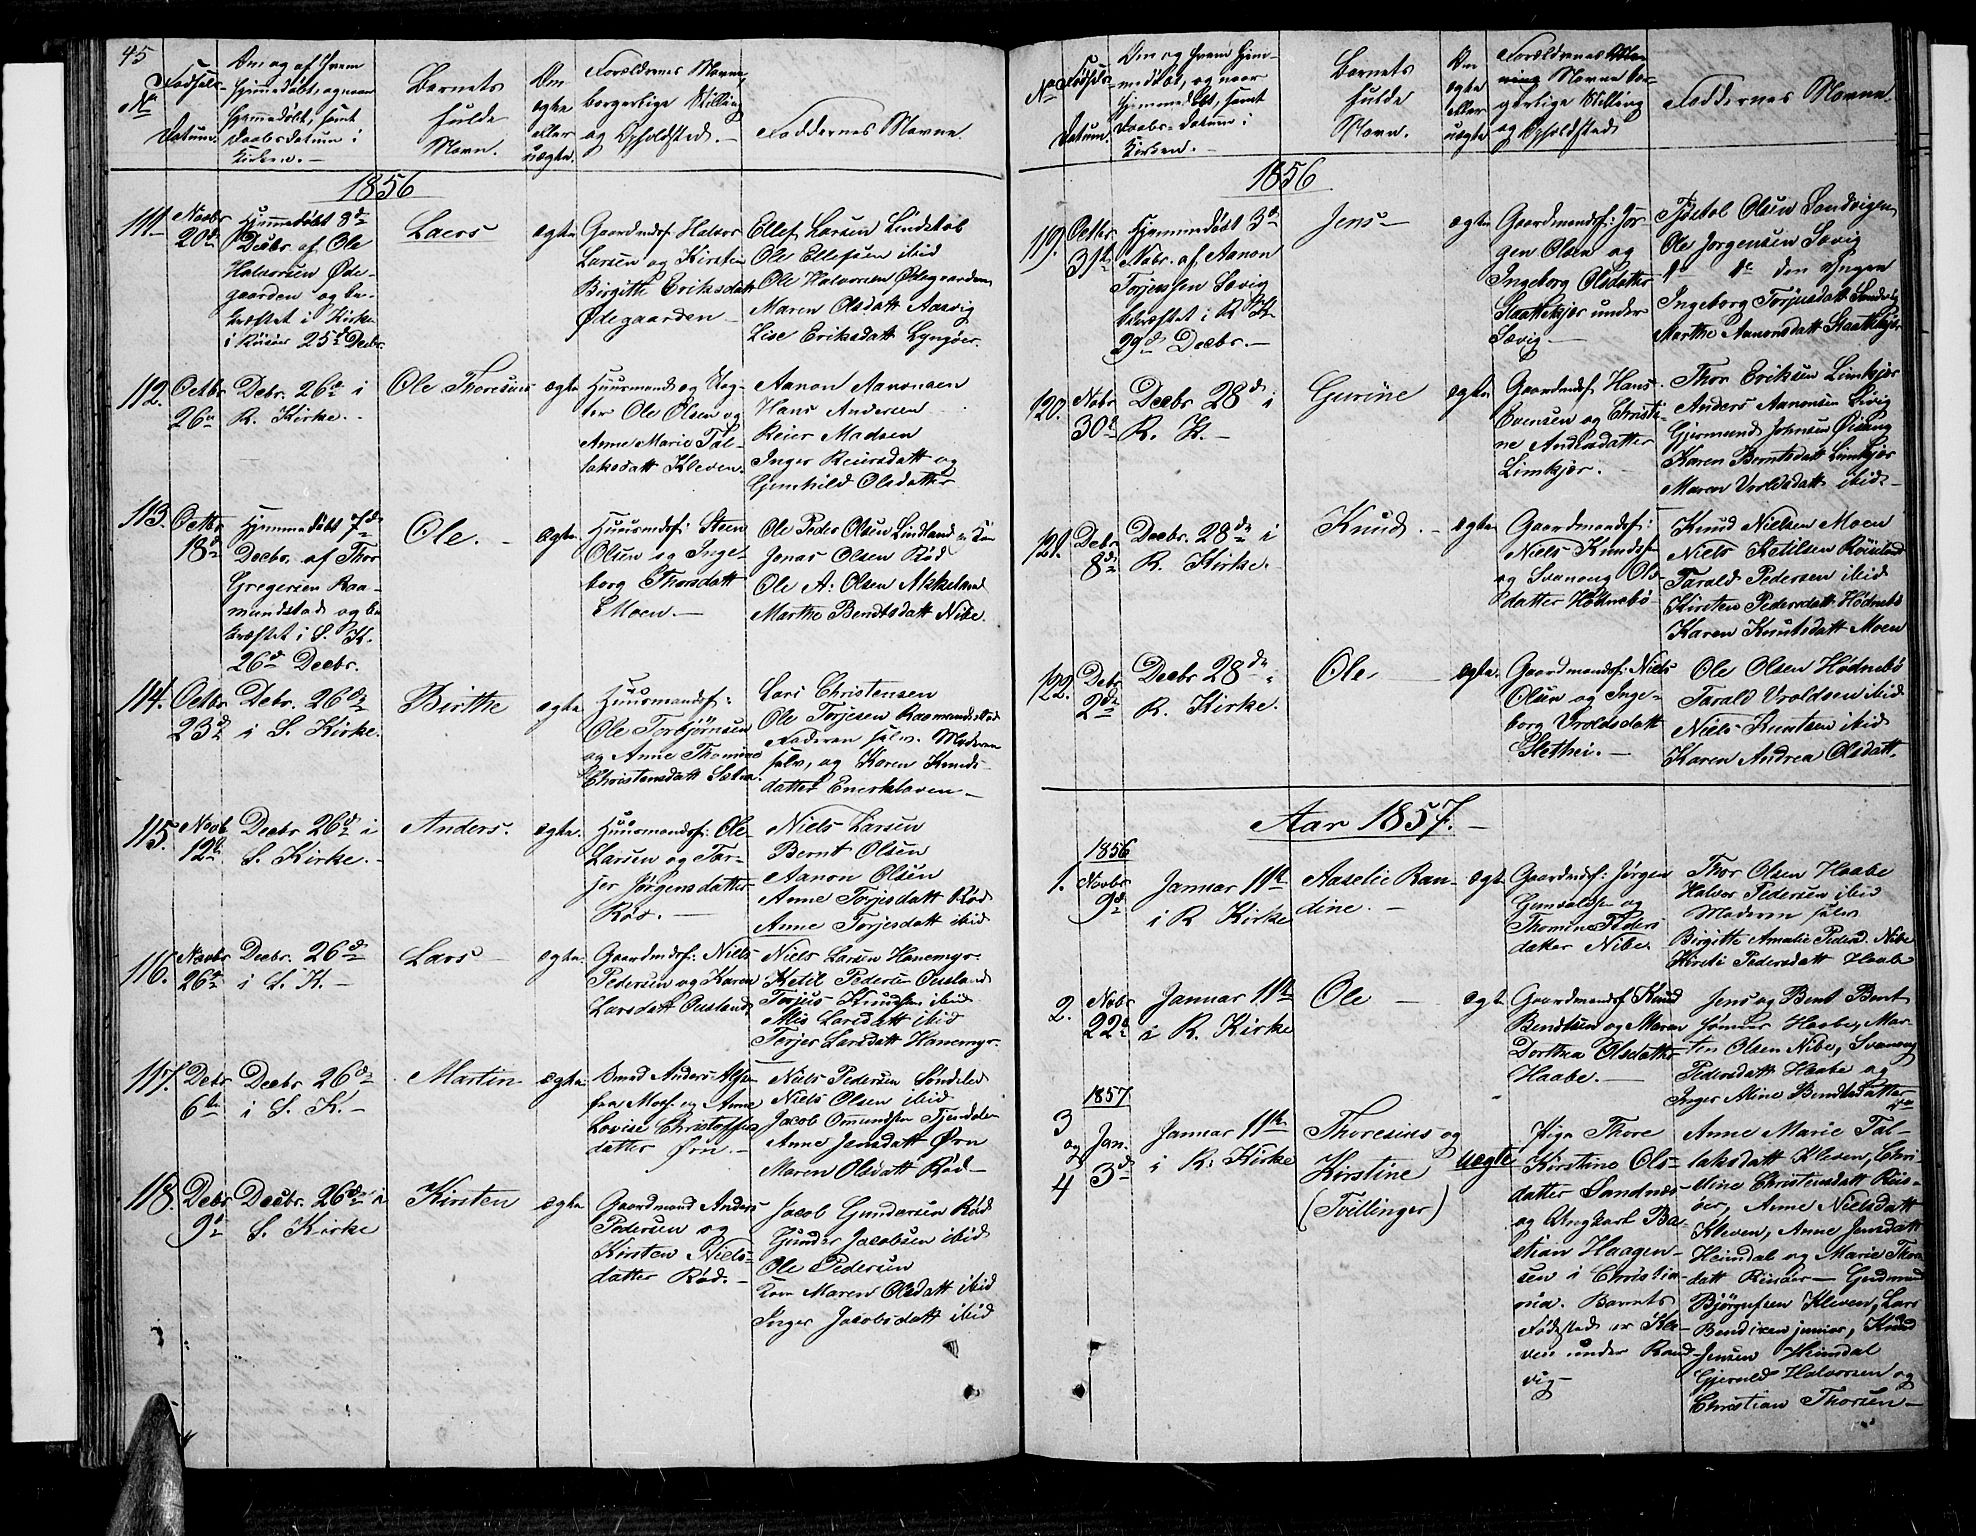 45
No
Fødsels-
Datum.
Om og af hvem
hjemmedøbt, og naar
hjemmedøbt, samt
Daabsdatum i
Kirken. —
Barnets
fulde
Navn.
Om
ægte
eller
uægte.
Forældrenes Navne
borgerlige Stilling
og Opholdsted. —
Faddernes Navne
1856
111. Novbr 20de
Hjemmedøbt 8de
Decbr. af Ole
Halvorsen Øde-
gaarden og be-
kræftet i Kirke
i Risøer 25de Decbr.
Laers
ægte
Gaardmdsf. Halvor
Larsen og Kirsten
Birgitte Eriksdatt
Ødegaarden —
Ellef Larsen Lindstøl
Ole Ellefsen ibid
Ole Halvorsen Ødegaarden
Maren Olsdatt Aasvig
Lise Eriksdatt Lyngøer.
112. Octbr 26de
Debr. 26de i
R. Kirke. —
Ole Thoresius
ægte
Huusmand og
Ole Olsen og
Anne Marie Tal-
laksdatt Kleven.
Aanon Aanonsen
Hans Andersen
Reier Madsen
Inger Reiersdatt og
Gunhild Olsdatter
113. Octbr 18de
Hjemmedøbt 7de
Decbr. af Thor
Gregersen Raa-
mundstad og be-
kræftet i S. K.
26de Decbr.
Ole. —
ægte.
Huusmdsf: Steen
Olsen og Inge-
borg Thorsdatt
Moen. —
Ole Peder Olsen Lindland
Jonas Olsen Rød
Ole A. Olsen Akkeland
Marthe Bendtsdatt Nibe.
114. Octbr 23de
Debr. 26de
i S. Kirke.
Birthe
ægte
Huusmandsf:
Ole Torbjørnsen
og Anne Thomine
Christensdatt
Lars Christensen
Ole Torjesen Raamundstad
Faderen selv. Moderen
selv, og Karen Knuds-
datter Enerklaven —
115. Novb 12de
Decbr 26de i
S. Kirke. —
Anders.
ægte.
Huusmandsf: Ole
Larsen og Tor-
jer Jørgensdatter
Røs. —
Niels Larsen
Bernt Olsen
Aanon Olsen
Anne Torjesdatt Rød
Anne Torjesdatt ibid
116. Novbr 26de
Decbr. 26de
i S. K. —
Lars
ægte.
Gaardmdsf: Niels
Pedersen og Karen
Larsdatt Ousland
Niels Larsen Hanemyr
Ketil Pedersen Ousland
Torjus Knudsen ibid.
Mis Larsdatt ibid
Terjer Larsdatt Hanemyr.
117. Debr 6te
Decbr 26de
i S. K. —
Martin
ægte
Anders
fra Mosf. og Anne
Lovise Christoffers
datter Ørn. —
Niels Pedersen Søndeled
Niels Olsen ibid
Jacob Omundsen Fjendalen
Anne Jensdatt Ørn
Maren Olsdatt Rød —
118. Debr 9de
Decbr. 26de i
S. Kirke
Kirsten
ægte
Gaardmand Anders
Pedersen og
Kirsten Niels-
datter Rød. —
Jacob Gundersen Rød
Gunder Jacobsen ibid
Ole Pedersen
Maren Olsdatt ibid
Inger Jacobsdatt ibid
No
Fødsels-
Datum.
Om og hvem hjem-
medøbt, og naar
hjemmedøbt, samt
Daabs-Datum i
Kirken. —
Barnets
fulde
Navn.
Om
ægte
eller
uægte
Forældrenes
Navne bor-
gerlige Stilling
og Opholdsted
Faddernes Navne.
1856
119. Octbr 31te
Hjemmedøbt 3de
Nobr. af Aanon
Torjessen Sævig
bekræftet i R. K.
29de Decbr. —
Jens —
ægte
Gaardmandsf: Jør-
gen Olsen og
Ingeborg Olsdatter
Slaattekjær under
Sævig. —
Tjøstol Olsen Sandvigen
Ole Jørgensen Sævig
do do den Yngre
Ingeborg Torjusdatt Sandvig
Marthe Aanonsdatt Slaattekjær
120. Nobr. 30te
Decbr 28de i
R. K. —
Gurine
ægte
Gaardmdsf. Hans
Evensen og Christi-
ne Andersdatter
Limkjær. —
Thor Eriksen Limkjær
Anders Aanonsen Sivig
Gjermund Johnsen
Karen Berntsdatt Limkjær
Maren Vroldsdatt ibid —
121. Debr 8de
Decbr. 28de i
R. Kirke.
Knud. —
ægte
Gaardmandsf:
Niels Knudsen
og Svanaug Ols-
datter Hødnebø
Knud Nielsen Moen
Niels Ketilsen Røisland
Tarald Pedersen ibid
Kirsten Pedersdatt Hødnebø
Karen Knutsdatt Moen
122. Debr 2de
Decbr 28de i
R. Kirke.
Ole —
ægte.
Gaardmandsf: Niels
Olsen og Inge-
borg Vroldsdatt
Slethei. —
Ole Olsen Hødnebø
Tarald Vroldsen ibid
Niels Knutsen ibid
Karen Andrea Olsdatt.
Aar 1857. —
1856
1. Novbr 9de
Januar 11te
i R. Kirke
Aaselie Ran-
dine. —
ægte
Gaardmdsf: Jørgen
Gundersen og
Thomine Peders
datter Nibe. —
Thor Olsen Haabe
Halvor Pedersen ibid
Moderen selv
Birgitte Amalie Pedersd. Nibe
Kirsti Pedersdatt Haabe
2. Nobr 22de
Januar 11te
i R. Kirke
Ole —
ægte
Gaardmandsf. Knud
Bendtsen og Maren
Dorthea Olsdatter
Haabe. —
Jens og Bent Bent
sønner Haabe, Mar-
ten Olsen Nibe, Svanaug
Pedersdatt Haabe og
Inger Aline Bendtsdatter
1857
3 og 4
Jan. 3de
Januar 11te
i R. Kirke
Thoresius og
Kirstine
(Tvillinger)
uægte
Pige Thore
Kirstine Ols-
datter Sandnæs
og Ungkarl Ba-
stian Haagen-
sen i Christia-
nia. Barnets
Fødested er Kle-
ven under Rand-
vig —
Anne Marie Tal-
laksdatt Kleven, Chri-
stine Christensdatt Riis-
øer, Anne Nielsdatt
Kleven, Anne Jensdatt
Heimdal og Marie Thors
datt Risøer — Gudmund
Bjørgufsen Kleven, Lars
Bendixen junior, Knud
Jensen Heimdal
Gjeruld Halvorsen og
Christian Thorsen —